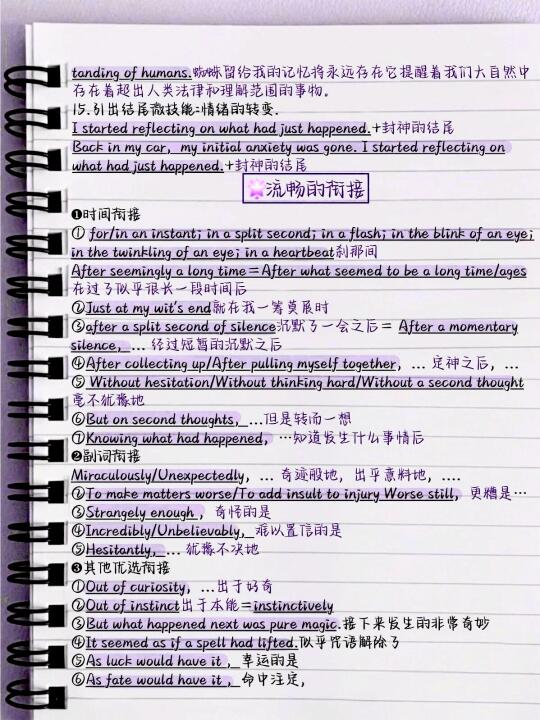 tanding of humans.蜘蛛留给我的记忆将永远存在它提醒着我们大自然中
存在着超出人类法律和理解范围的事物。
15.引出结尾微技能:情绪的转变.
I started reflecting on what had just happened.+封神的结尾
Back in my car, my initial anxiety was gone. I started reflecting on
what had just happened.+封神的结尾
流畅的衔接
❶时间衔接
① for/in an instant; in a split second; in a flash; in the blink of an eye;
in the twinkling of an eye; in a heartbeat刹那间
After seemingly a long time=After what seemed to be a long time/ages
在过了似乎很长一段时间后
②Just at my wit's end就在我一筹莫展时
③after a split second of silence沉默了一会之后= After a momentary
silence, ... 经过短暂的沉默之后
④After collecting up/After pulling myself together, ... 定神之后, ...
⑤ Without hesitation/Without thinking hard/Without a second thought
毫不犹豫地
⑥But on second thoughts, ...但是转而一想
⑦Knowing what had happened, ...知道发生什么事情后
❷副词衔接
Miraculously/Unexpectedly, ... 奇迹般地, 出乎意料地, ....
②To make matters worse/To add insult to injury Worse still, 更糟是...
③Strangely enough , 奇怪的是
④Incredibly/Unbelievably, 难以置信的是
⑤Hesitantly, ... 犹豫不决地
❸其他优选衔接
①Out of curiosity, ...出于好奇
②Out of instinct出于本能=instinctively
③But what happened next was pure magic.接下来发生的非常奇妙
④It seemed as if a spell had lifted.似乎咒语解除了
⑤As luck would have it , 幸运的是
⑥As fate would have it , 命中注定,